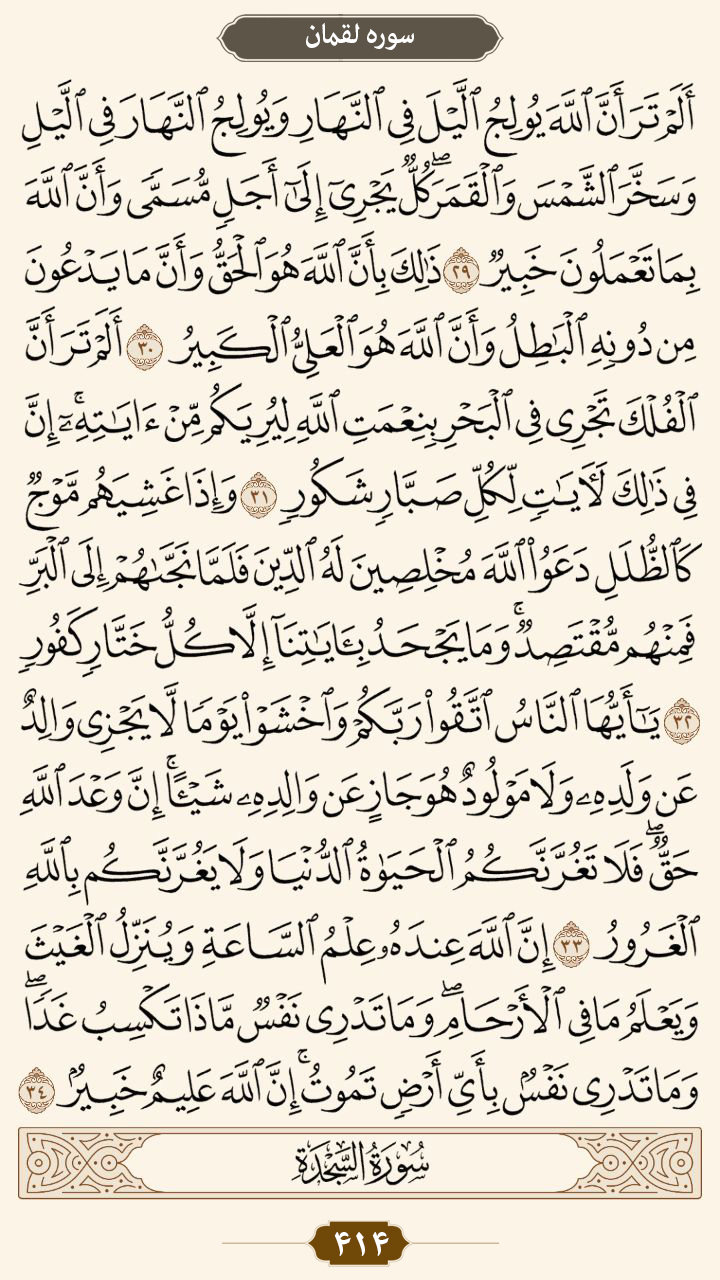 سوره لقمان
أَلَمْ تَرَ أَنَّ ٱللَّهَ يُولِجُ ٱلَّيْلَ فِى ٱلنَّهَارِ وَيُولِجُ ٱلنَّهَارَ فِى ٱلَّيْلِ
وَسَخَّرَ ٱلشَّمْسَ وَٱلْقَمَرَۖ كُلٌّ يَجْرِىٓ إِلَىٰٓ أَجَلٍ مُّسَمًّى وَأَنَّ ٱللَّهَ
بِمَا تَعْمَلُونَ خَبِيرٌ ٢٩ ذَٰلِكَ بِأَنَّ ٱللَّهَ هُوَ ٱلْحَقُّ وَأَنَّ مَا يَدْعُونَ
مِن دُونِهِ ٱلْبَٰطِلُ وَأَنَّ ٱللَّهَ هُوَ ٱلْعَلِىُّ ٱلْكَبِيرُ ٣٠ أَلَمْ تَرَ أَنَّ
ٱلْفُلْكَ تَجْرِى فِى ٱلْبَحْرِ بِنِعْمَتِ ٱللَّهِ لِيُرِيَكُم مِّنْ ءَايَٰتِهِۦٓۚ إِنَّ
فِى ذَٰلِكَ لَءَايَٰتٍ لِّكُلِّ صَبَّارٍ شَكُورٍ ٣١ وَإِذَا غَشِيَهُم مَّوْجٌ
كَٱلظُّلَلِ دَعَوُا۟ ٱللَّهَ مُخْلِصِينَ لَهُ ٱلدِّينَ فَلَمَّا نَجَّىٰهُمْ إِلَى ٱلْبَرِّ
فَمِنْهُم مُّقْتَصِدٌۚ وَمَا يَجْحَدُ بِـَٔايَٰتِنَآ إِلَّا كُلُّ خَتَّارٍ كَفُورٍ
٣٢ يَٰٓأَيُّهَا ٱلنَّاسُ ٱتَّقُوا۟ رَبَّكُمْ وَٱخْشَوْا۟ يَوْمًا لَّا يَجْزِى وَالِدٌ
عَن وَلَدِهِۦ وَلَا مَوْلُودٌ هُوَ جَازٍ عَن وَالِدِهِۦ شَيْـًٔاۚ إِنَّ وَعْدَ ٱللَّهِ
حَقٌّۖ فَلَا تَغُرَّنَّكُمُ ٱلْحَيَوٰةُ ٱلدُّنْيَا وَلَا يَغُرَّنَّكُم بِٱللَّهِ
ٱلْغَرُورُ ٣٣ إِنَّ ٱللَّهَ عِندَهُۥ عِلْمُ ٱلسَّاعَةِ وَيُنَزِّلُ ٱلْغَيْثَ
وَيَعْلَمُ مَا فِى ٱلْأَرْحَامِۖ وَمَا تَدْرِى نَفْسٌ مَّاذَا تَكْسِبُ غَدًاۖ
وَمَا تَدْرِى نَفْسٌۢ بِأَىِّ أَرْضٍ تَمُوتُۚ إِنَّ ٱللَّهَ عَلِيمٌ خَبِيرٌۢ ٣٤
سُورَةُ السَّجْدَةِ
۴۱۴